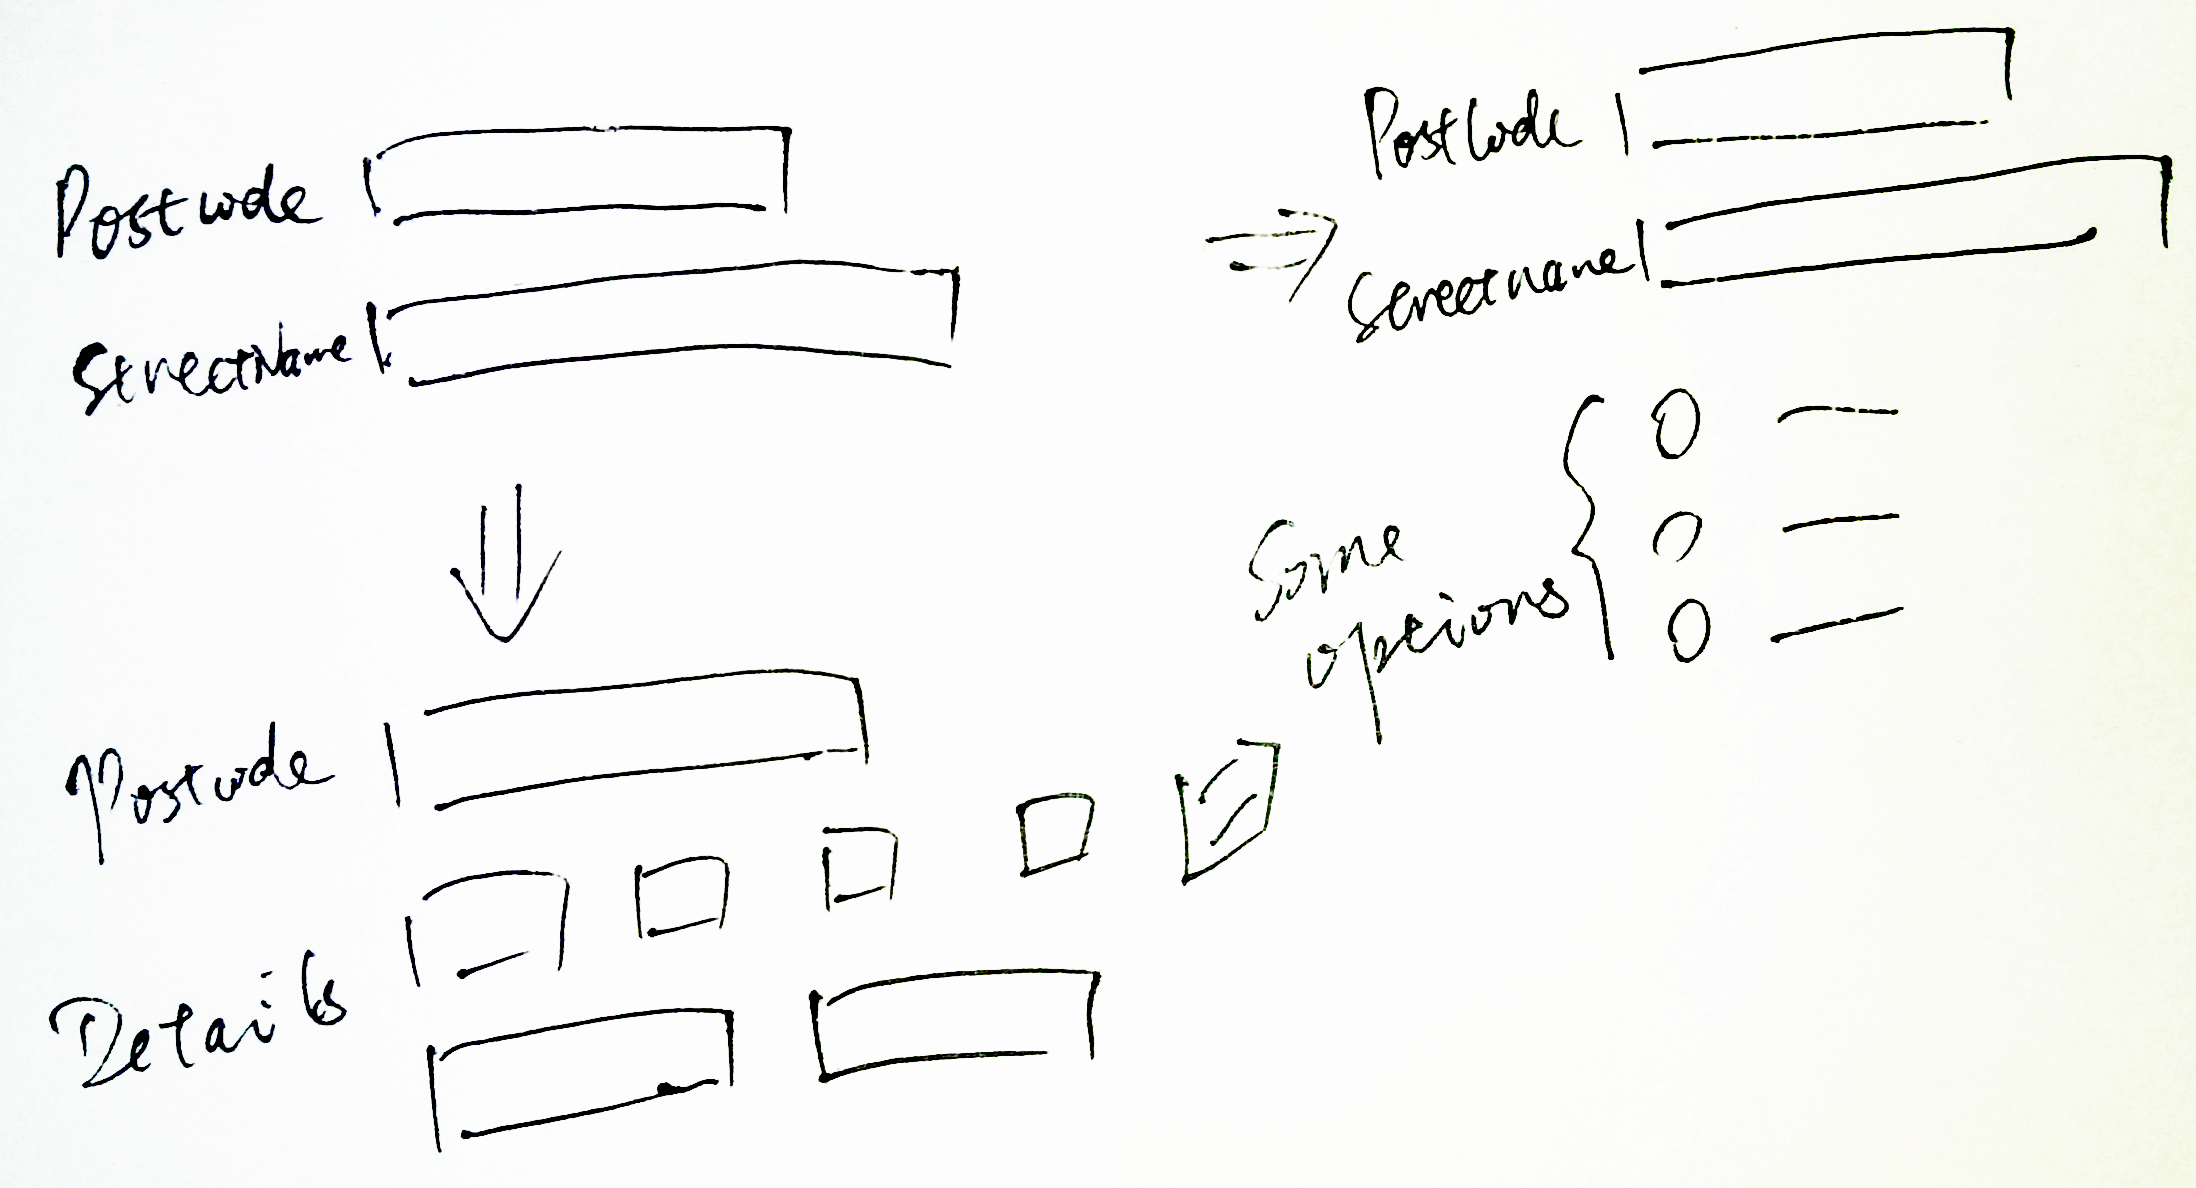 Postcode
StreetName
PostCode
Streetname
Some
options
Postcode
Details